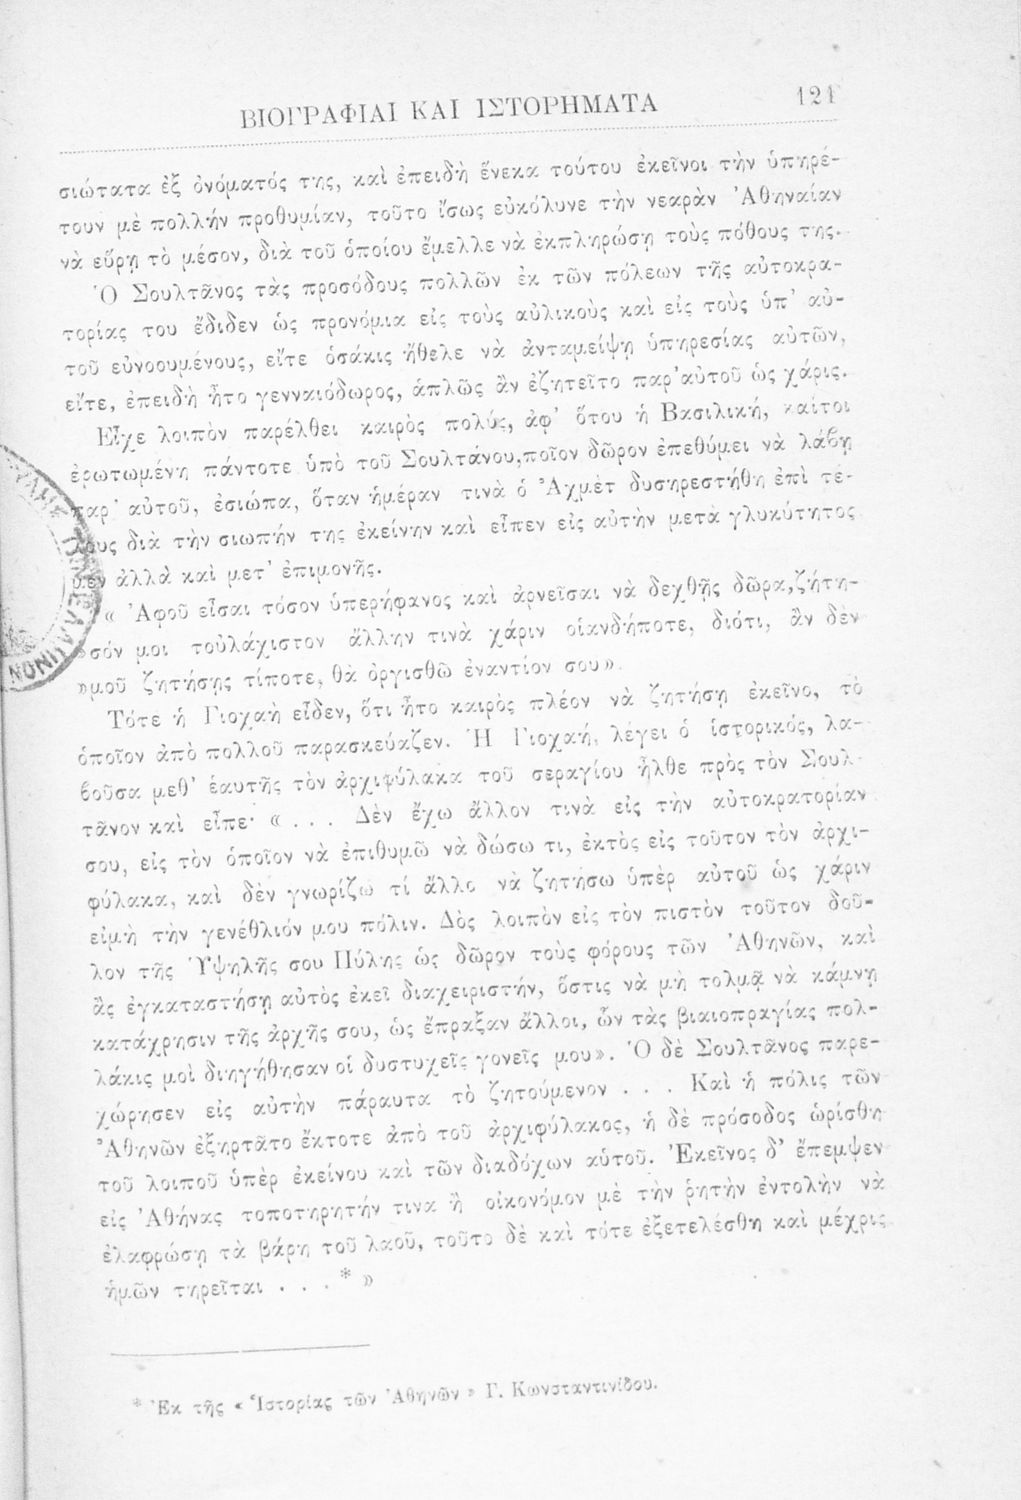 ΒΙΟΓΡΑΦΙΑΙ ΚΑΙ ΙΣΤΟΡΗΜΑΤΑ 121
σιώτατα ἐξ ὀνόματός της, καὶ ἐπειδὴ ἕνεκα τούτου ἐκεῖνοι τὴν ὑπηρέ-
τουν μὲ πολλὴν προθυμίαν, τοῦτο ἴσως εὐκόλυνε τὴν νεαρὰν Ἀθηναίαν
νὰ εὕρῃ τὸ μέσον, διὰ τοῦ ὁποίου ἔμελλε νὰ ἐκπληρώσῃ τοὺς πόθους της.
Ὁ Σουλτᾶνος τὰς προσόδους πολλῶν ἐκ τῶν πόλεων τῆς αὐτοκρα-
τορίας του ἔδιδεν ὡς προνόμια εἰς τοὺς αὐλικοὺς καὶ εἰς τοὺς ὑπ' αὐ-
τοῦ εὐνοουμένους, εἴτε ὁσάκις ἤθελε νὰ ἀνταμείψῃ ὑπηρεσίας αὐτῶν,
εἴτε, ἐπειδὴ ἦτο γενναιόδωρος, ἁπλῶς ἂν ἐζητεῖτο παρ' αὐτοῦ ὡς χάρις.
Εἶχε λοιπὸν παρέλθει καιρὸς πολύς, ἀφ' ὅτου ἡ Βασιλική, καίτοι
ἐρωτωμένη πάντοτε ὑπὸ τοῦ Σουλτάνου, ποῖον δῶρον ἐπεθύμει νὰ λάβῃ
παρ' αὐτοῦ, ἐσιώπα, ὅταν ἡμέραν τινὰ ὁ Ἀχμὲτ δυσηρεστήθη ἐπὶ τέ-
λους διὰ τὴν σιωπήν της ἐκείνην καὶ εἶπεν εἰς αὐτὴν μετὰ γλυκύτητος
μὲν ἀλλὰ καὶ μετ' ἐπιμονῆς.
« Ἀφοῦ εἶσαι τόσον ὑπερήφανος καὶ ἀρνεῖσαι νὰ δεχθῇς δῶρα, ζήτη-
»σόν μοι τοὐλάχιστον ἄλλην τινὰ χάριν οἱανδήποτε, διότι, ἂν δὲν
»μοῦ ζητήσῃς τίποτε, θὰ ὀργισθῶ ἐναντίον σου».
Τότε ἡ Γιοχαὴ εἶδεν, ὅτι ἦτο καιρὸς πλέον νὰ ζητήσῃ ἐκεῖνο, τὸ
ὁποῖον ἀπὸ πολλοῦ παρασκεύαζεν. Ἡ Γιοχαή, λέγει ὁ ἱστορικός, λα-
βοῦσα μεθ' ἑαυτῆς τὸν ἀρχιφύλακα τοῦ σεραγίου ἦλθε πρὸς τὸν Σουλ-
τᾶνον καὶ εἶπε· « . . . Δὲν ἔχω ἄλλον τινὰ εἰς τὴν αὐτοκρατορίαν
σου, εἰς τὸν ὁποῖον νὰ ἐπιθυμῶ νὰ δώσω τι, ἐκτὸς εἰς τοῦτον τὸν ἀρχι-
φύλακα, καὶ δὲν γνωρίζω τί ἄλλο νὰ ζητήσω ὑπὲρ αὐτοῦ ὡς χάριν
εἰμὴ τὴν γενέθλιόν μου πόλιν. Δὸς λοιπὸν εἰς τὸν πιστὸν τοῦτον δοῦ-
λον τῆς Ὑψηλῆς σου Πύλης ὡς δῶρον τοὺς φόρους τῶν Ἀθηνῶν, καὶ
ἂς ἐγκαταστήσῃ αὐτὸς ἐκεῖ διαχειριστήν, ὅστις νὰ μὴ τολμᾷ νὰ κάμνῃ
κατάχρησιν τῆς ἀρχῆς σου, ὡς ἔπραξαν ἄλλοι, ὧν τὰς βιαιοπραγίας πολ-
λάκις μοὶ διηγήθησαν οἱ δυστυχεῖς γονεῖς μου». Ὁ δὲ Σουλτᾶνος παρε-
χώρησεν εἰς αὐτὴν πάραυτα τὸ ζητούμενον . . . Καὶ ἡ πόλις τῶν
Ἀθηνῶν ἐξηρτᾶτο ἔκτοτε ἀπὸ τοῦ ἀρχιφύλακος, ἡ δὲ πρόσοδος ὡρίσθη
τοῦ λοιποῦ ὑπὲρ ἐκείνου καὶ τῶν διαδόχων αὑτοῦ. Ἐκεῖνος δ' ἔπεμψεν
εἰς Ἀθήνας τοποτηρητήν τινα ἢ οἰκονόμον μὲ τὴν ῥητὴν ἐντολὴν νὰ
ἐλαφρώσῃ τὰ βάρη τοῦ λαοῦ, τοῦτο δὲ καὶ τότε ἐξετελέσθη καὶ μέχρις
ἡμῶν τηρεῖται . . . * »
* Ἐκ τῆς « Ἱστορίας τῶν Ἀθηνῶν » Γ. Κωνσταντινίδου.